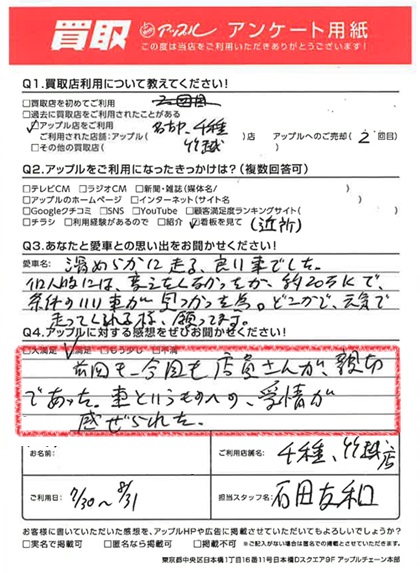 買取 アップル アンケート用紙
この度は当店をご利用いただきありがとうございます!
Q1.買取店利用について教えてください!
□買取を初めてご利用
□過去に買取をご利用されたことがある
☑アップル店をご利用
ご利用された店舗:アップル( 千種 竹越 )店 アップルへのご売却( 2 回目)
□その他の買取店( )
Q2.アップルをご利用になったきっかけは?(複数回答可)
□テレビCM □ラジオCM □新聞・雑誌(媒体名/ )
□アップルのホームページ □インターネット(サイト名 )
□Googleクチコミ □SNS □YouTube □顧客満足度ランキングサイト( )
□チラシ □利用経験があるので □紹介 ☑看板を見て(近所)
Q3.あなたと愛車との思い出をお聞かせください!
愛車名: 滑めらかに走る、良い車でした。
個人的には、 約20万Kで、
条件のいい車が見つかった為。どこかで、元気で
走ってくれる様、願ってます。
Q4.アップルに対する感想をぜひお聞かせください!
□大満足 ☑満足 □もう少し □不満
前回も、今回も店員さんが、親切
であった。車というものへの、愛情が
感ぜられた。
お名前:
ご利用店舗名: 千種、竹越店
ご利用日: 7/30〜8/31
担当スタッフ名: 石田友和
お客様に書いていただいた感想を、アップルHPや広告に掲載させていただいてもよろしいでしょうか?
□実名で掲載可 □匿名なら掲載可 □掲載不可 ※ご記入がない場合は匿名での掲載とさせていただきます。
東京都中央区日本橋1丁目16番11号日本橋Dスクエア9F アップルチェーン本部